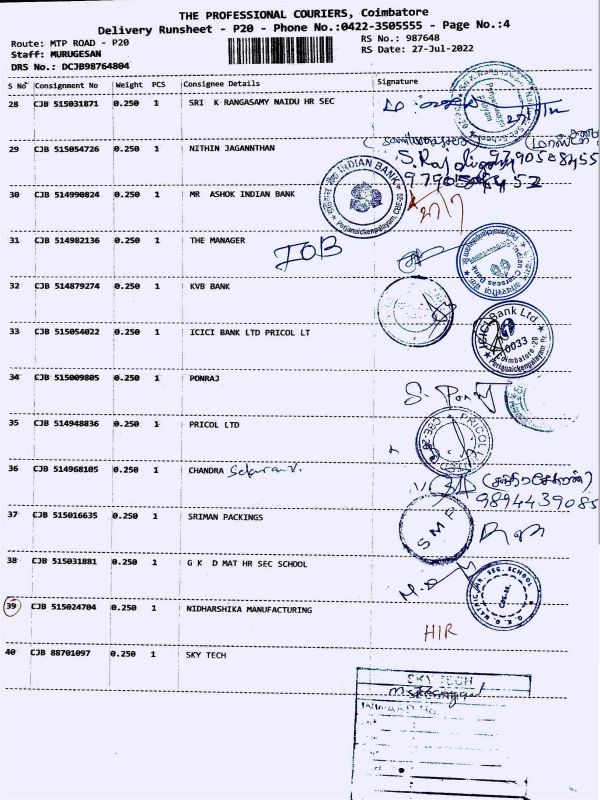 THE PROFESSIONAL COURIERS, Coimbatore
Delivery Runsheet - P20 - Phone No.:0422-3505555 - Page No.:4
Route: MTP ROAD - P20
RS No.: 987648
Staff: MURUGESAN
RS Date: 27-Jul-2022
DRS No.: DCJB98764804
S No Consignment No Weight PCS Consignee Details Signature
28 CJB 515031871 0.250 1 SRI K RANGASAMY NAIDU HR SEC
29 CJB 515054726 0.250 1 NITHIN JAGANNTHAN
9790508455
30 CJB 514990824 0.250 1 MR ASHOK INDIAN BANK
INDIAN BANK
Perianaickenpalayam CBE-20
31 CJB 514982136 0.250 1 THE MANAGER
IOB
Indian Overseas Bank
32 CJB 514879274 0.250 1 KVB BANK
33 CJB 515054022 0.250 1 ICICI BANK LTD PRICOL LT
ICICI Bank Ltd
0033
Coimbatore-20
Perianaickenpalayam Br
34 CJB 515009805 0.250 1 PONRAJ
35 CJB 514948836 0.250 1 PRICOL LTD
PRICOL LTD
36 CJB 514968105 0.250 1 CHANDRA
9894439085
37 CJB 515016635 0.250 1 SRIMAN PACKINGS
S M P
38 CJB 515031881 0.250 1 G K D MAT HR SEC SCHOOL
G. K. D. MATRIC. HR. SEC. SCHOOL
39 CJB 515024704 0.250 1 NIDHARSHIKA MANUFACTURING
HIR
40 CJB 88701097 0.250 1 SKY TECH
SKY TECH